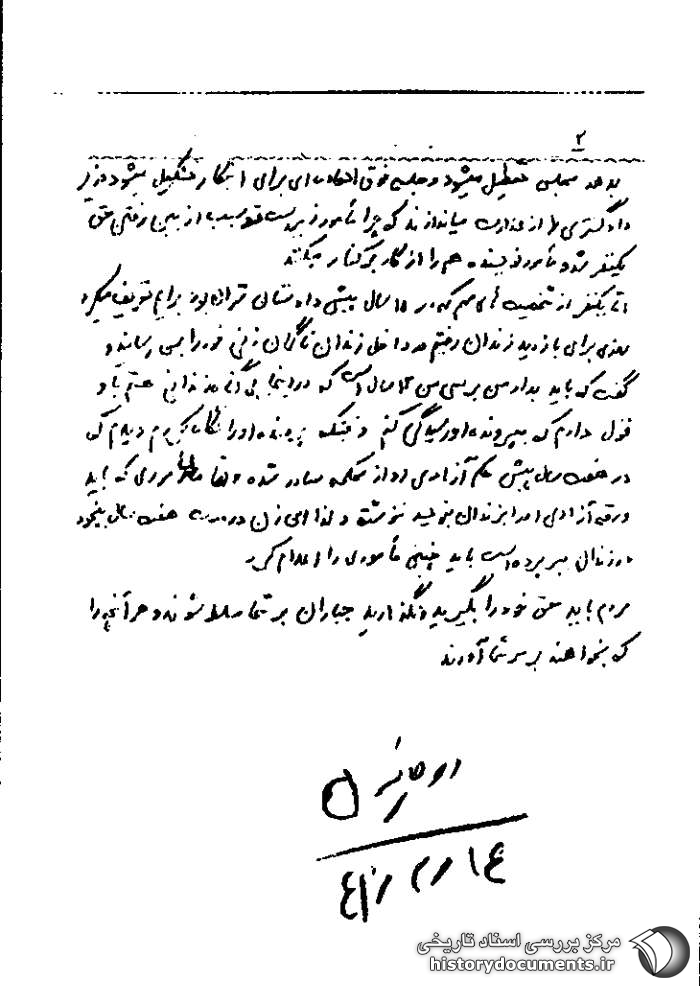 ۲
بدهد مجلس تعطیل میشود و جلسه فوق العاده ای برای اینکار تشکیل میشود وزیر
دادگستری را از وزارت میاندازند که چرا مأمور زیردست تو سبب از بین رفتن حق
یکنفر شده و مأمور نویسنده هم را از کار برکنار میکنند
یکنفر از شخصیت های مهم که در ۱۵ سال پیش دادستان تهران بود برایم تعریف میکرد
روزی برای بازدید زندان رفتم در داخل زندان ناگهان زنی خود را بمن رساند و
گفت که باید بداد من برسی من ۱۴ سال است که در اینجا بی گناه زندانی هستم باو
قول دادم که بپرونده او رسیدگی کنم وقتیکه پرونده او را نگاه کردم دیدم که
در هفت سال پیش حکم آزادی او از محکمه صادر شده و مأموری که باید
ورقه آزادی او را بزندان بنویسد ننوشته و لذا این زن در مدت هفت سال بیخود
در زندان بسر برده است باید چنین مأموری را اعدام کرد
مردم باید حق خود را بگیرید و نگذارید جباران بر شما مسلط شوند و هر آنچه را
که بخواهند بر سر شما آورند
مرکز بررسی اسناد تاریخی
historydocuments.ir